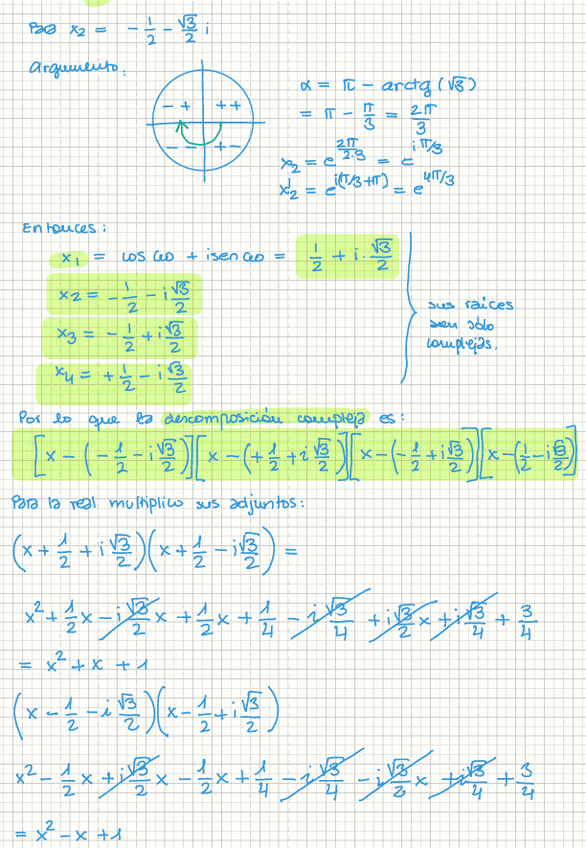 Para x₂ = -1/2 - √3/2 i
argumento.
- + + +
- - + -
α = π - arctg (√3)
= π - π/3 = 2π/3
x₂ = e^(2π/2·3) = e^(iπ/3)
x₂' = e^(i(π/3+π)) = e^(4π/3)
Entonces:
x₁ = cos 60 + i sen 60 = 1/2 + i · √3/2
x₂ = -1/2 - i√3/2
x₃ = -1/2 + i√3/2
x₄ = +1/2 - i√3/2
sus raices
son sólo
complejas.
Por lo que la descomposición compleja es:
[x - (-1/2 - i√3/2)][x - (+1/2 + i√3/2)][x - (-1/2 + i√3/2)][x - (1/2 - i√3/2)]
Para la real multiplico sus adjuntos:
(x + 1/2 + i√3/2)(x + 1/2 - i√3/2) =
x² + 1/2x - i√3/2x + 1/2x + 1/4 - i√3/4 + i√3/2x + i√3/4 + 3/4
= x² + x + 1
(x - 1/2 - i√3/2)(x - 1/2 + i√3/2)
x² - 1/2x + i√3/2x - 1/2x + 1/4 - i√3/4 - i√3/2x + i√3/4 + 3/4
= x² - x + 1